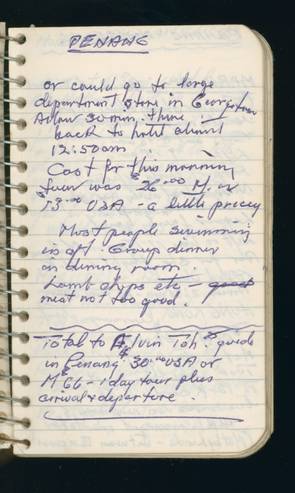 PENANG
or could go to large
department store in Georgetown
Allow 30 min. there,
back to hotel about
12:50am
Cost for this morning
tour was $26.00 M. or
$13.00 USA - a little pricey
Most people swimming
in aft. Group dinner
in dining room.
Lamb chops etc -
meat not too good.
Total to Alvin Toh - guide
in Penang $30.00 USA or
M$66 - 1 day tour plus
arrival & departure.